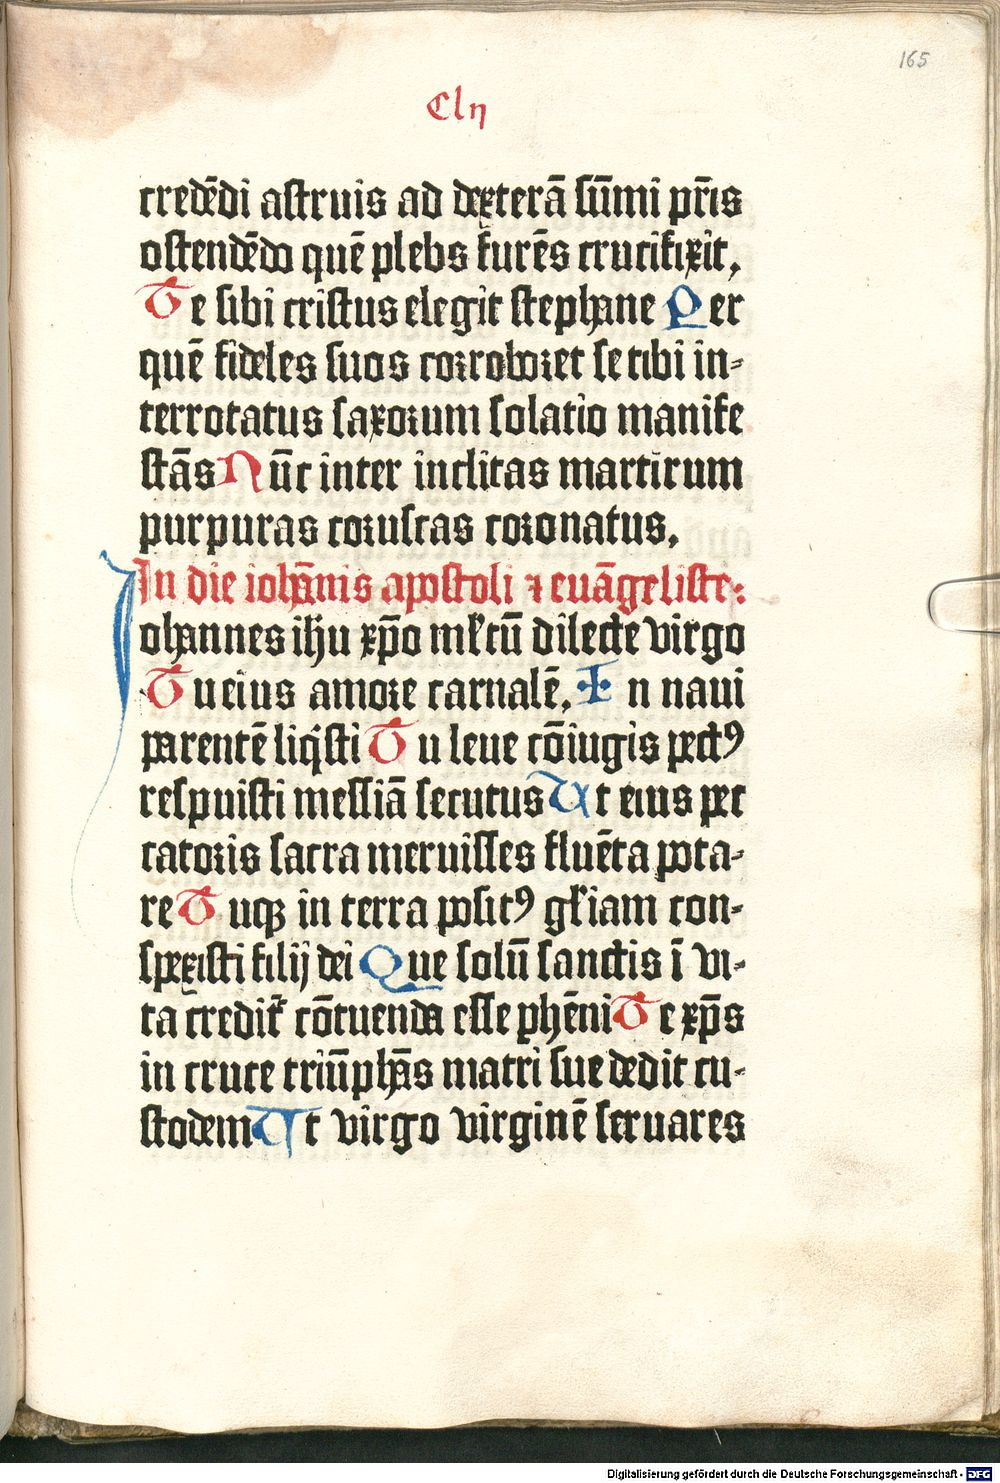 165
Clij
credēdi astruis ad dexterā sūmi pr̄is
ostendēdo quē plebs furēs crucifixit,
Te sibi cristus elegit stephane Per
quē fideles suos corroboret se tibi in-
terrotatus saxorum solatio manife
stās Nūc inter inclitas martirum
purpuras coruscas coronatus,
In die iohānis apostoli ⁊ euāgeliste:
Iohannes ihu xp̄o ml̄tū dilecte virgo
Tu eius amore carnalē, In naui
parentē liq̇sti Tu leue cōiugis pectꝰ
respuisti messiā secutus Ut eius pec
catoris sacra meruisses fluēta pota-
re Tuqꝫ in terra positꝰ gl̄iam con-
spexisti filij dei Que solū sanctis ī vi-
ta credit̄ cōtuenda esse phēni Te xp̄s
in cruce triūphās matri sue dedit cu-
stodem Ut virgo virginē seruares
Digitalisierung gefördert durch die Deutsche Forschungsgemeinschaft - DFG